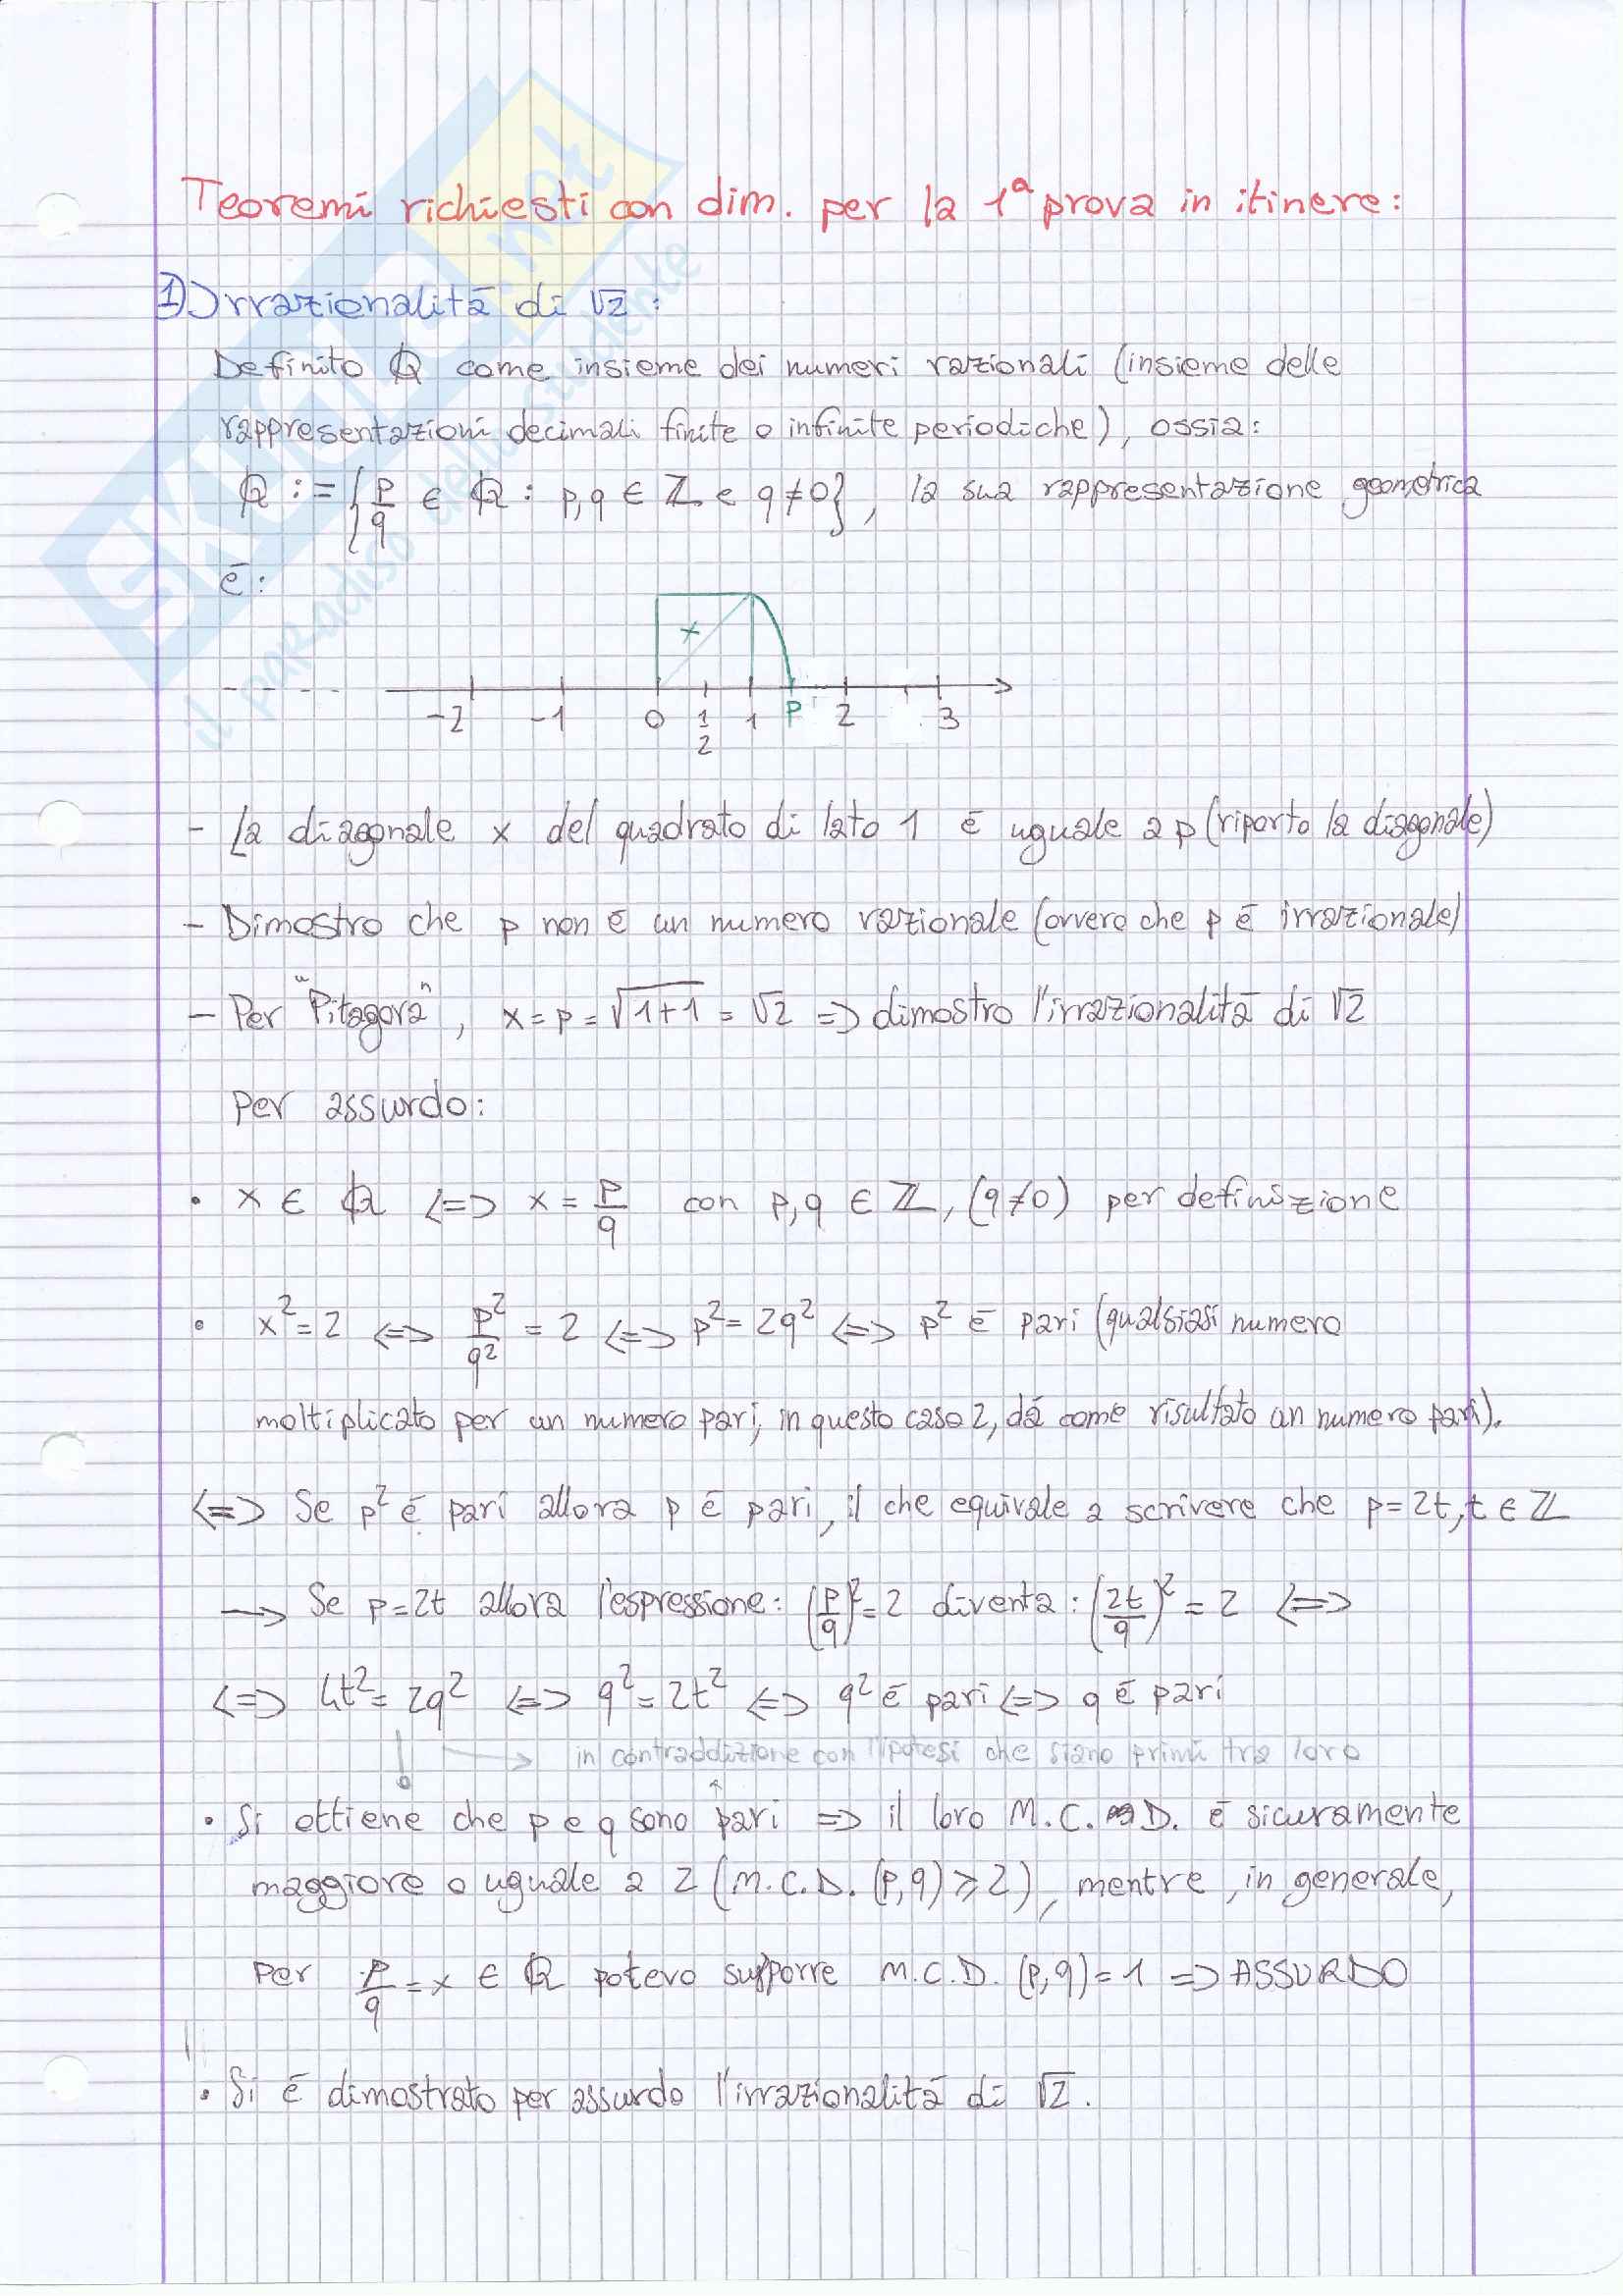 Teoremi richiesti con dim. per la 1ª prova in itinere:
1) Irrazionalità di √2:
Definito ℚ come insieme dei numeri razionali (insieme delle
rappresentazioni decimali finite o infinite periodiche), ossia:
ℚ := {p/q ∈ ℚ : p,q ∈ ℤ e q≠0}, la sua rappresentazione geometrica
è:
x
-2 -1 0 1/2 1 P 2 3
- La diagonale x del quadrato di lato 1 è uguale a p (riporto la diagonale)
- Dimostro che p non è un numero razionale (ovvero che p è irrazionale)
- Per "Pitagora", x = p = √1+1 = √2 => dimostro l'irrazionalità di √2
Per assurdo:
• x ∈ ℚ <=> x = p/q con p,q ∈ ℤ, (q≠0) per definizione
• x² = 2 <=> p²/q² = 2 <=> p² = 2q² <=> p² è pari (qualsiasi numero
moltiplicato per un numero pari, in questo caso 2, dà come risultato un numero pari).
<=> Se p² è pari allora p è pari, il che equivale a scrivere che p=2t, t ∈ ℤ
→ Se p=2t allora l'espressione: (p/q)² = 2 diventa: (2t/q)² = 2 <=>
<=> 4t² = 2q² <=> q² = 2t² <=> q² è pari <=> q è pari
→ in contraddizione con l'ipotesi che siano primi tra loro
• Si ottiene che p e q sono pari => il loro M.C.D. è sicuramente
maggiore o uguale a 2 (M.C.D. (p,q) ⩾ 2), mentre, in generale,
per p/q = x ∈ ℚ potevo supporre M.C.D. (p,q) = 1 => ASSURDO
• Si è dimostrato per assurdo l'irrazionalità di √2.
SKUOLA.net
il paradiso dello studente